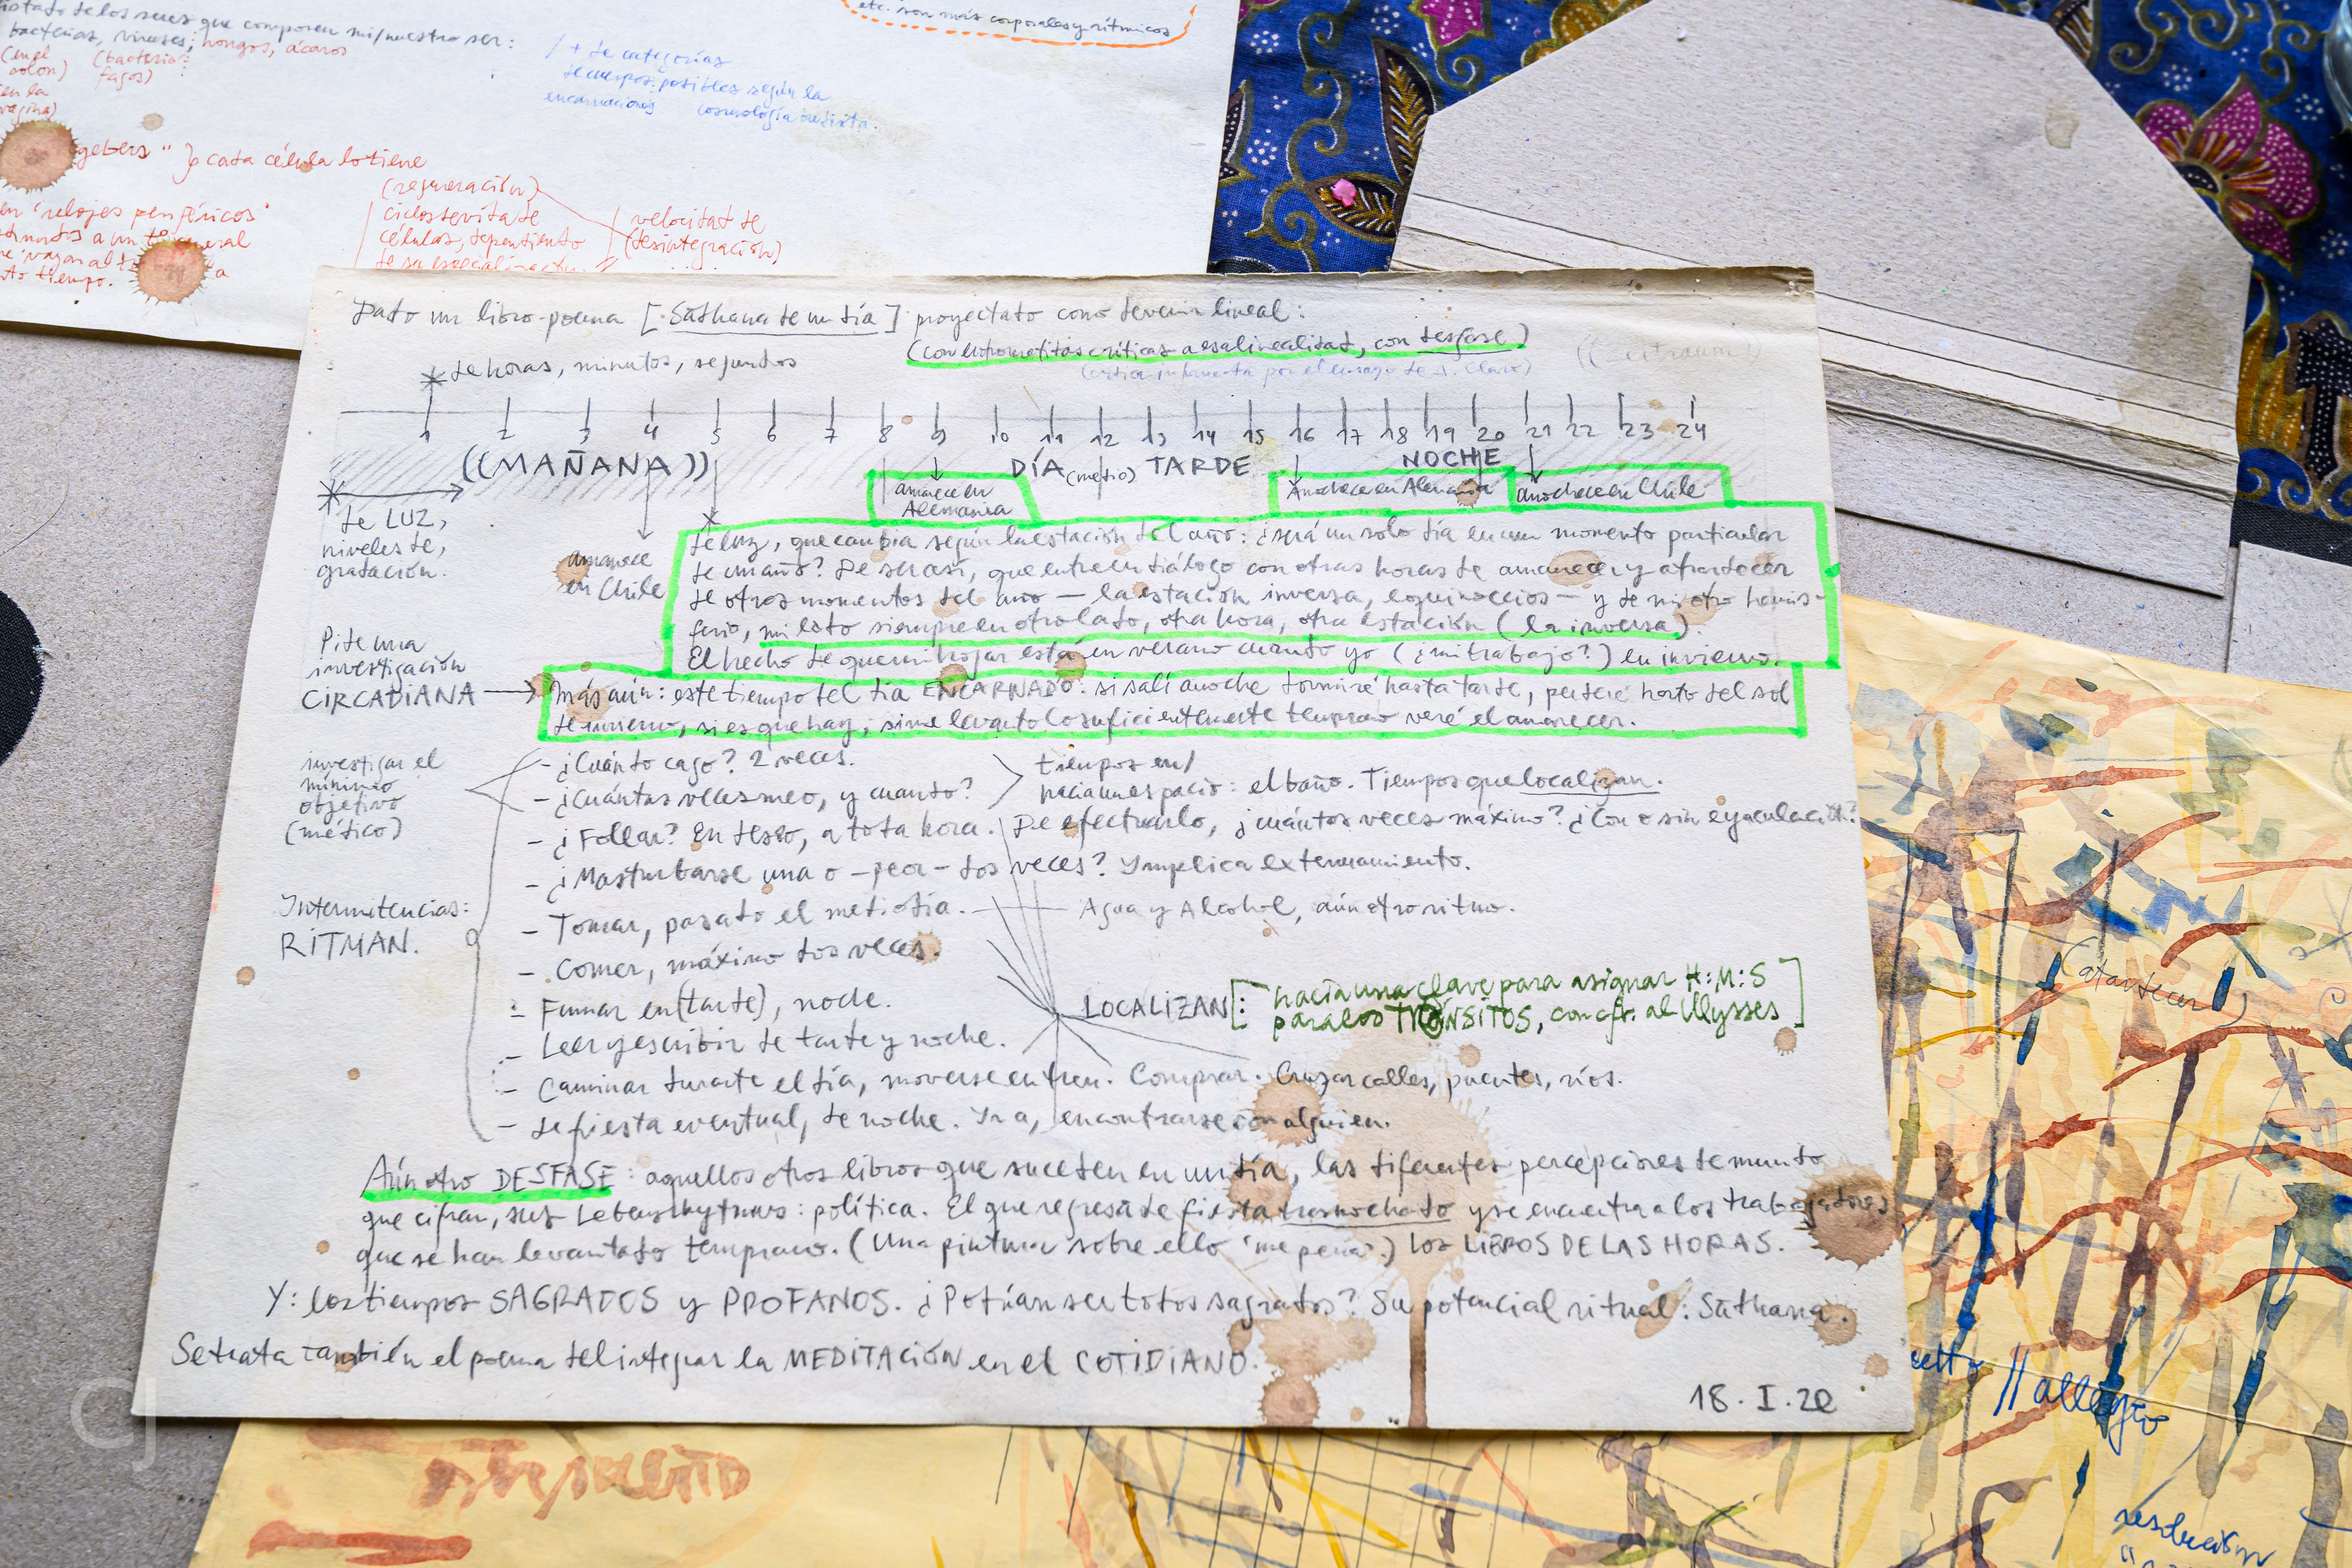 listado de los seres que componen mi/nuestro ser:
bacterias, viruses, hongos, ácaros
(en el colon) (bacterió-fagos)
en la vagina)
etc. son más corporales y rítmicos
/ + de categorías
de cuerpos posibles según la
encarnaciones cosmología budista.
gebers" } cada célula lo tiene
(regeneración)
en "relojes periféricos"
ciclos de vida de
células, dependiendo
de su
velocidad de
(desintegración)
Dado un libro-poema [Sādhana de un día] proyectado como devenir lineal:
(con entrometidas críticas a esa linealidad, con desfase)
de horas, minutos, segundos
1 2 3 4 5 6 7 8 9 10 11 12 13 14 15 16 17 18 19 20 21 22 23 24
((MAÑANA)) DÍA (medio) TARDE NOCHE
amanece en Alemania
Anochece en Alemania
anochece en Chile
de LUZ,
niveles de,
gradación.
amanece
en Chile
de luz, que cambia según la estación del año: ¿será un solo día en un momento particular
de un año? De ser así, que entre en diálogo con otras horas de amanecer y atardecer
de otros momentos del año — la estación inversa, equinoccios — y de mi otro hemis-
ferio, mi lado siempre en otro lado, otra hora, otra estación (la inversa).
El hecho de que mi hogar está en verano cuando yo (¿mi trabajo?) en invierno.
Pide una
investigación
CIRCADIANA →
más aún: este tiempo del día ENCARNADO: si salí anoche dormiré hasta tarde, perderé harto del sol
de invierno, si es que hay, si me levanto lo suficientemente temprano veré el amanecer.
investigar el
mínimo
objetivo
(médico)
- ¿Cuánto cago? 2 veces.
- ¿Cuántas veces meo, y cuanto?
tiempos en/
hacia un espacio: el baño. Tiempos que localizan.
- ¿Follar? En deseo, a toda hora. De efectuarlo, ¿cuántas veces máximo? ¿Con o sin eyaculación?
- ¿Masturbarse una o - peor - dos veces? Implica extenuamiento.
Intermitencias:
RITMAN.
- Tomar, pasado el mediodía. — Agua y Alcohol, aún otro ritmo.
- Comer, máximo dos veces.
- Fumar en (tarde), noche.
LOCALIZAN: [hacia una clave para asignar H:M:S
para los TRÁNSITOS, con cfr. al Ulysses]
- Leer y escribir de tarde y noche.
- Caminar durante el día, moverse en tren. Comprar. Cruzar calles, puentes, ríos.
- de fiesta eventual, de noche. Ir a, encontrarse con alguien.
Aún otro DESFASE: aquellos otros libros que suceden en un día, las diferentes percepciones de mundo
que cifran, sus Lebensrhythmus: política. El que regresa de fiesta trasnochado y se encuentra a los trabajadores
que se han levantado temprano. (Una pintura sobre ello 'me pena'.) Los LIBROS DE LAS HORAS.
Y: los tiempos SAGRADOS y PROFANOS. ¿Podrían ser todos sagrados? Su potencial ritual: Sādhana.
Se trata también el poema del integrar la MEDITACIÓN en el COTIDIANO.
18.I.20
(atardecer)
// allegro
resolución
CJ